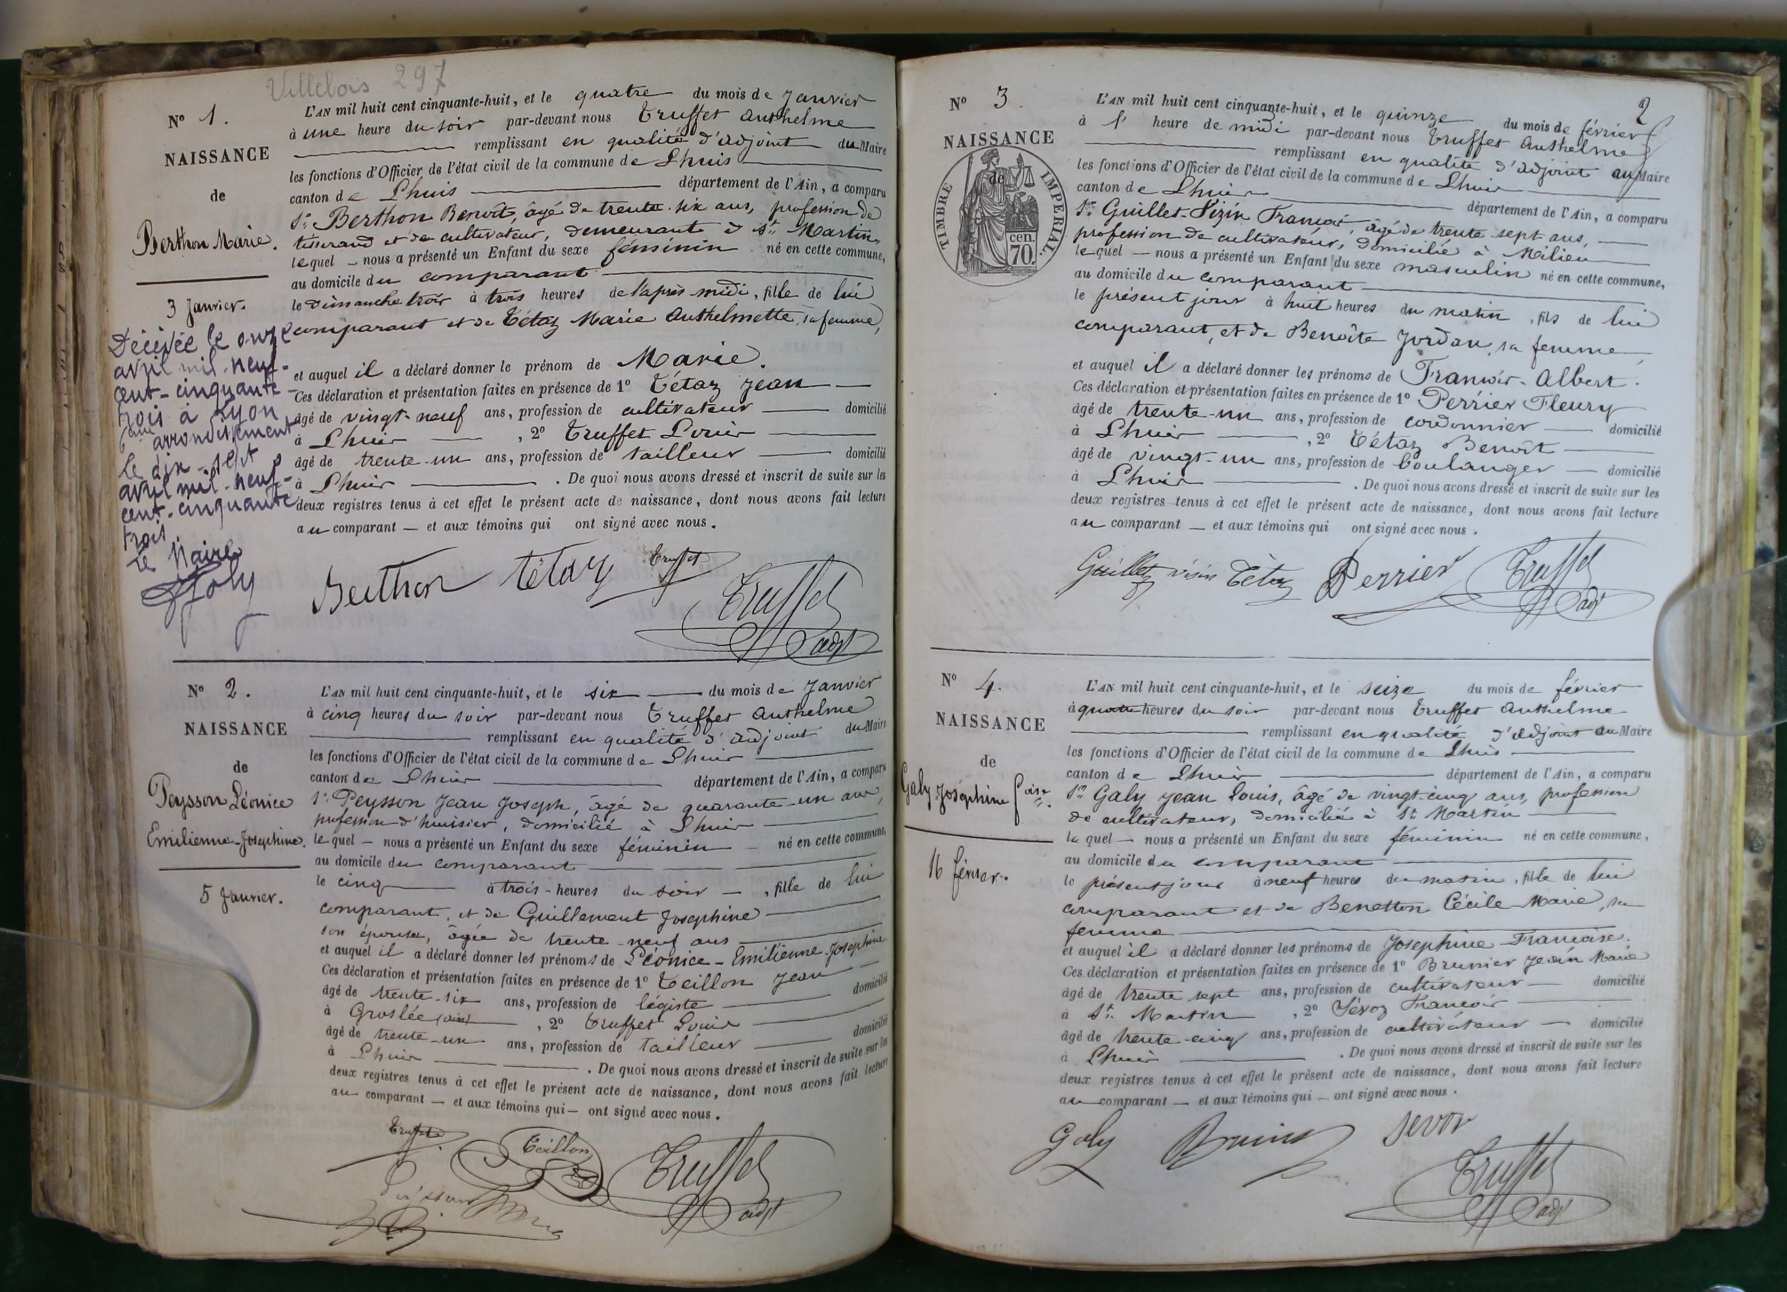 Villebois 297
N° 1.
NAISSANCE
de
Berthon Marie.
3 Janvier.
Décédée le onze
avril mil-neuf-
cent-cinquante-
trois à Lyon
arrondissement
le dix-sept
avril mil-neuf-
cent-cinquante
trois
Le Maire
Joly
L'AN mil huit cent cinquante-huit, et le quatre du mois de Janvier
à une heure du soir par-devant nous Truffet Anthelme
remplissant en qualité d'adjoint du Maire
les fonctions d'Officier de l'état civil de la commune de Lhuis
canton de Lhuis département de l'Ain, a comparu
Sr. Berthon Benoît, âgé de trente-six ans, profession de
tisserand et de cultivateur, demeurant à St. Martin,
lequel nous a présenté un Enfant du sexe féminin né en cette commune,
au domicile du comparant
le Dimanche trois à trois heures de l'après-midi, fille de lui
comparant et de Tétaz Marie Anthelmette, sa femme,
et auquel il a déclaré donner le prénom de Marie.
Ces déclaration et présentation faites en présence de 1° Tétaz Jean
âgé de vingt-neuf ans, profession de cultivateur domicilié
à Lhuis , 2° Truffet Louis
âgé de trente-un ans, profession de tailleur domicilié
à Lhuis . De quoi nous avons dressé et inscrit de suite sur les
deux registres tenus à cet effet le présent acte de naissance, dont nous avons fait lecture
au comparant et aux témoins qui ont signé avec nous.
Berthon Tétaz Truffet
Truffet
adjt
N° 2.
NAISSANCE
de
Peysson Léonice
Emilienne-Joséphine.
5 Janvier.
L'AN mil huit cent cinquante-huit, et le six du mois de Janvier
à cinq heures du soir par-devant nous Truffet Anthelme
remplissant en qualité d'adjoint du Maire
les fonctions d'Officier de l'état civil de la commune de Lhuis
canton de Lhuis département de l'Ain, a comparu
Sr. Peysson Jean Joseph, âgé de quarante-un ans,
profession d'huissier, domicilié à Lhuis
lequel nous a présenté un Enfant du sexe féminin né en cette commune,
au domicile du comparant
le cinq à trois heures du soir , fille de lui
comparant, et de Guillement Joséphine
son épouse, âgée de trente-neuf ans
et auquel il a déclaré donner les prénoms de Léonice-Emilienne-Joséphine
Ces déclaration et présentation faites en présence de 1° Teillon Jean
âgé de trente-six ans, profession de légiste domicilié
à Groslée (Ain) , 2° Truffet Louis
âgé de trente-un ans, profession de tailleur domicilié
à Lhuis . De quoi nous avons dressé et inscrit de suite sur les
deux registres tenus à cet effet le présent acte de naissance, dont nous avons fait lecture
au comparant et aux témoins qui ont signé avec nous.
Truffet Teillon Truffet
adjt
2
N° 3.
NAISSANCE
de
TIMBRE IMPERIAL
70 cen.
L'AN mil huit cent cinquante-huit, et le quinze du mois de février
à l' heure de midi par-devant nous Truffet Anthelme
remplissant en qualité d'adjoint au Maire
les fonctions d'Officier de l'état civil de la commune de Lhuis
canton de Lhuis département de l'Ain, a comparu
Sr. Guillet-Vizin François, âgé de trente sept ans,
profession de cultivateur, domicilié à Milieu
lequel nous a présenté un Enfant du sexe masculin né en cette commune,
au domicile du comparant
le présent jour à huit heures du matin , fils de lui
comparant, et de Benoîte Jordan, sa femme
et auquel il a déclaré donner les prénoms de François-Albert.
Ces déclaration et présentation faites en présence de 1° Perrier Fleury
âgé de trente-un ans, profession de cordonnier domicilié
à Lhuis , 2° Tétaz Benoît
âgé de vingt-un ans, profession de boulanger domicilié
à Lhuis . De quoi nous avons dressé et inscrit de suite sur les
deux registres tenus à cet effet le présent acte de naissance, dont nous avons fait lecture
au comparant et aux témoins qui ont signé avec nous.
Guillet visin Tétaz Perrier Truffet
adjt
N° 4.
NAISSANCE
de
Galy Joséphine
16 février.
L'AN mil huit cent cinquante-huit, et le seize du mois de février
à quatre heures du soir par-devant nous Truffet Anthelme
remplissant en qualité d'adjoint au Maire
les fonctions d'Officier de l'état civil de la commune de Lhuis
canton de Lhuis département de l'Ain, a comparu
Sr. Galy Jean Louis, âgé de vingt-cinq ans, profession
de cultivateur, domicilié à St. Martin
lequel nous a présenté un Enfant du sexe féminin né en cette commune,
au domicile du comparant
le présent jour à neuf heures du matin, fille de lui
comparant et de Benetton Cécile Marie, sa
femme
et auquel il a déclaré donner les prénoms de Joséphine-Françoise.
Ces déclaration et présentation faites en présence de 1° Brunier Jean Marie
âgé de trente sept ans, profession de cultivateur domicilié
à St. Martin , 2° Sévoz François
âgé de trente-cinq ans, profession de cultivateur domicilié
à Lhuis . De quoi nous avons dressé et inscrit de suite sur les
deux registres tenus à cet effet le présent acte de naissance, dont nous avons fait lecture
au comparant et aux témoins qui ont signé avec nous.
Galy Brunier Sevoz
Truffet
adjt